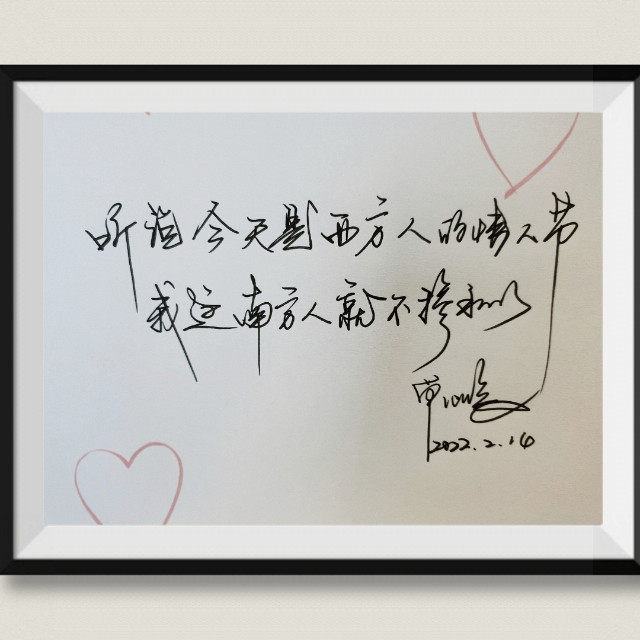 听说今天是西方人的情人节
我这南方人就不掺和以
2022.2.14